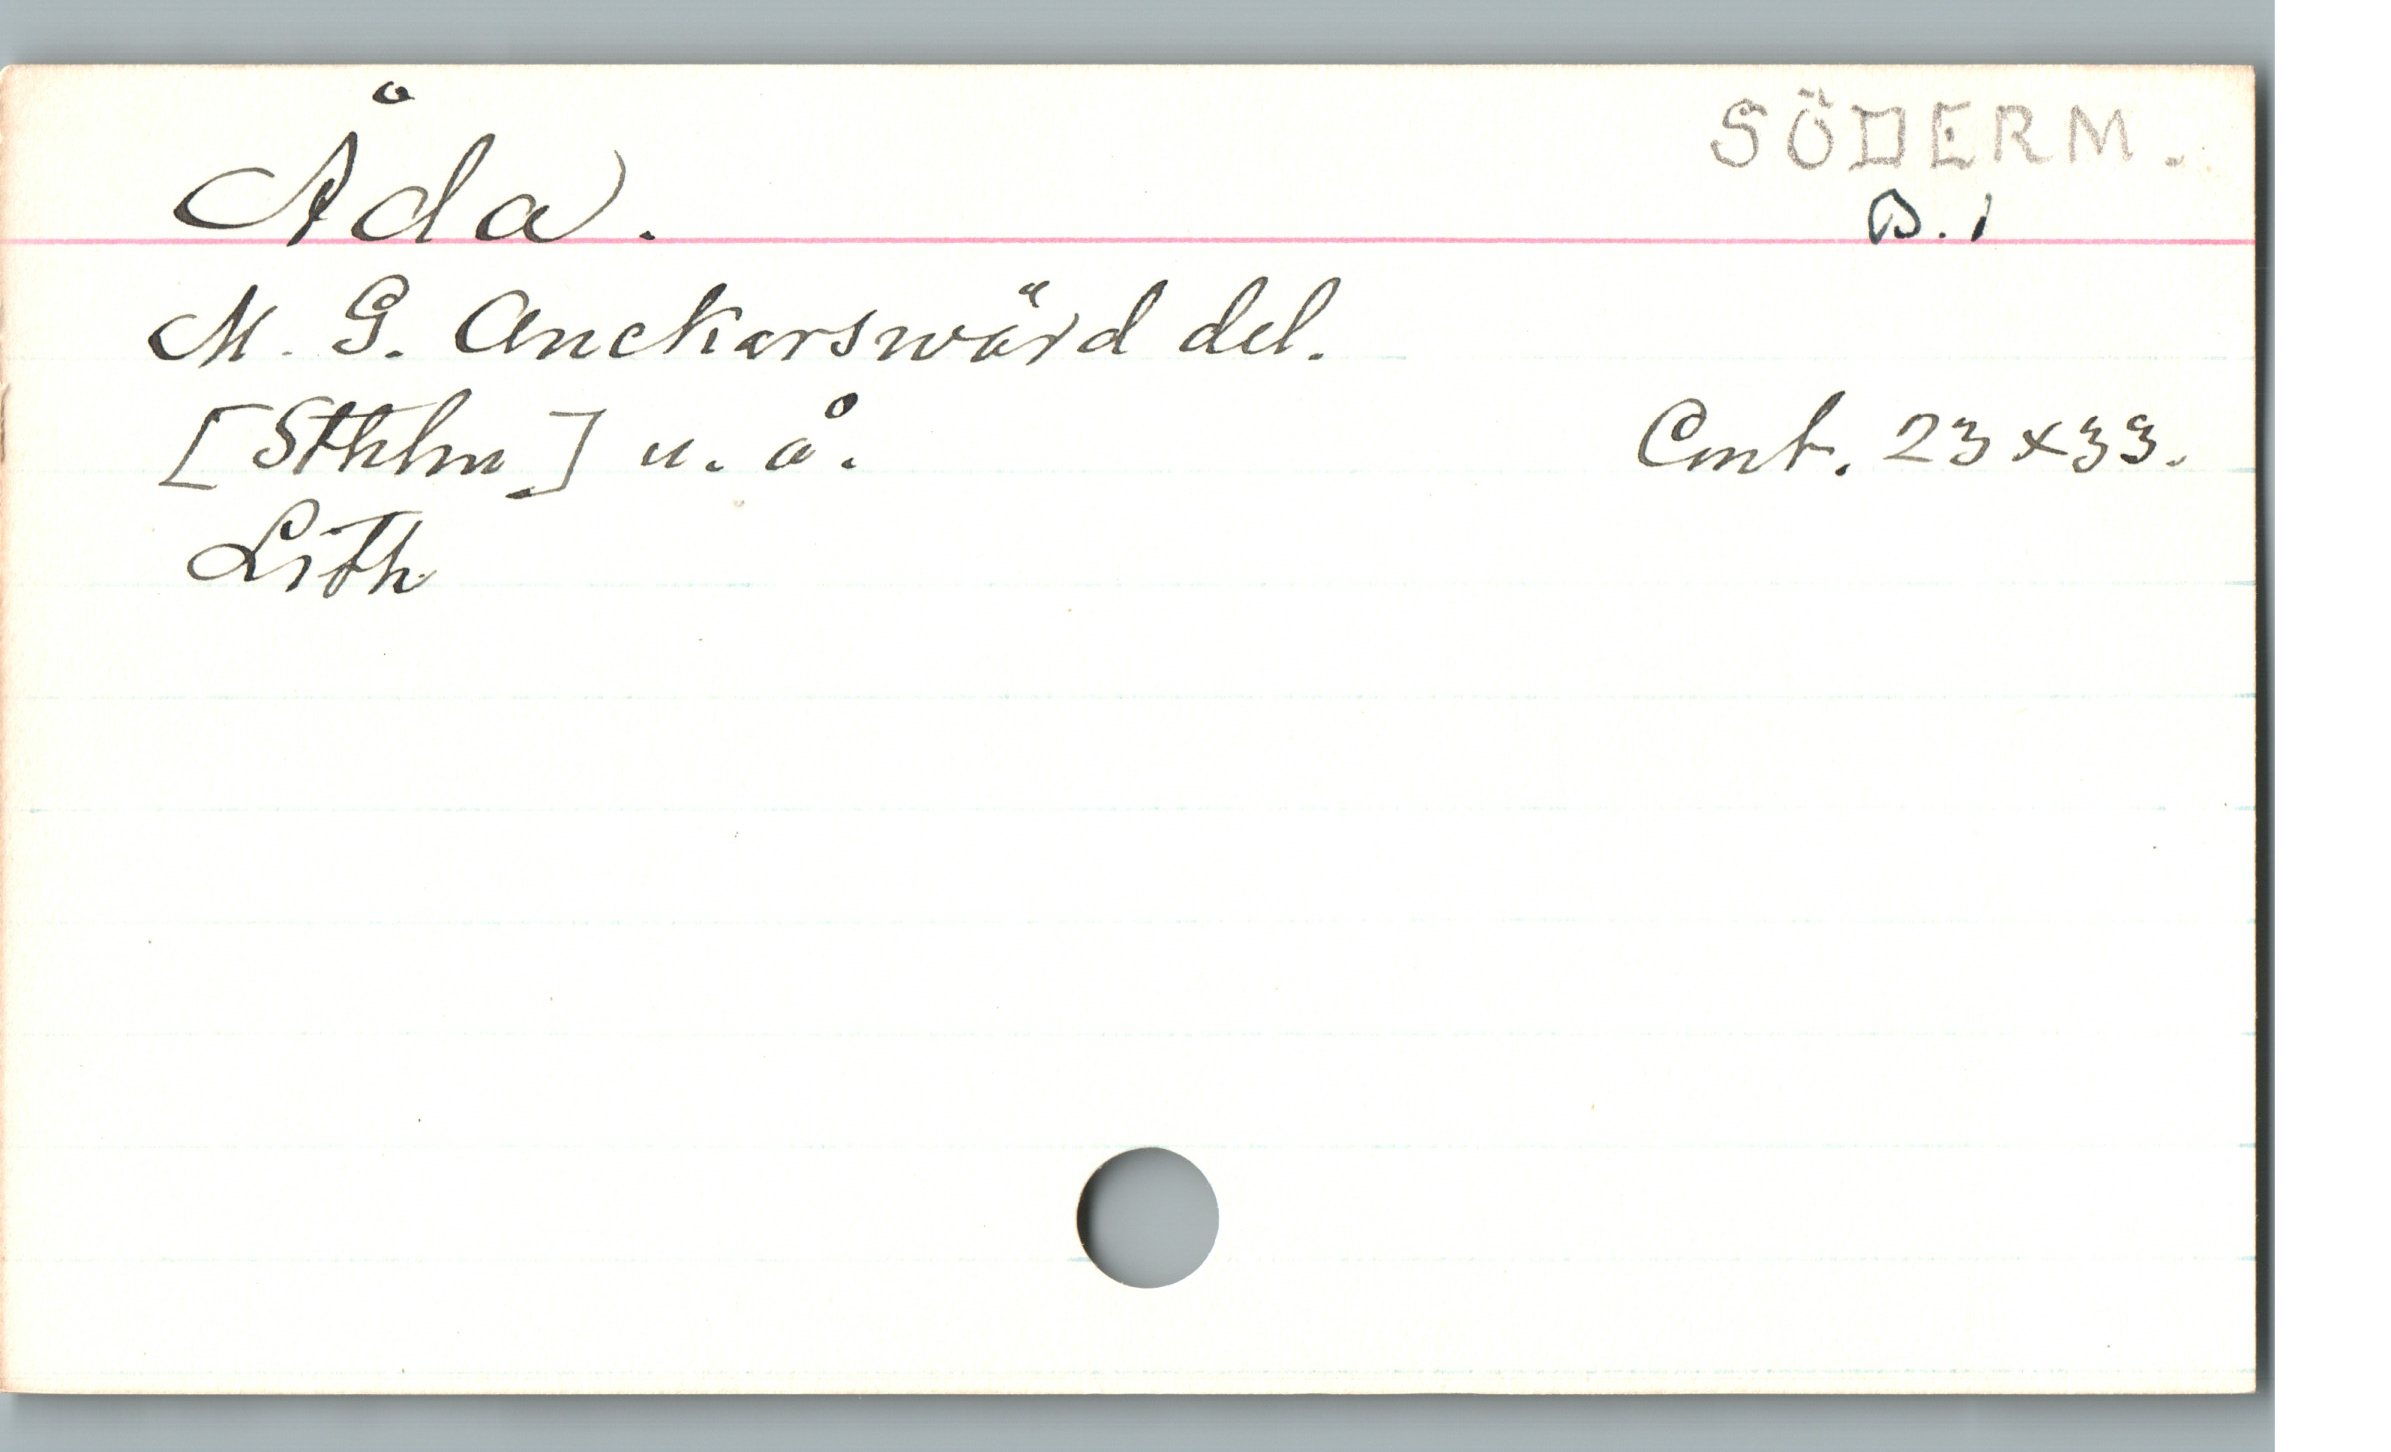 Åda.
SÖDERM.
B. 1
M. G. Anckarswärd del.
[Sthlm] u. å.
Cmt. 23x33.
Lith